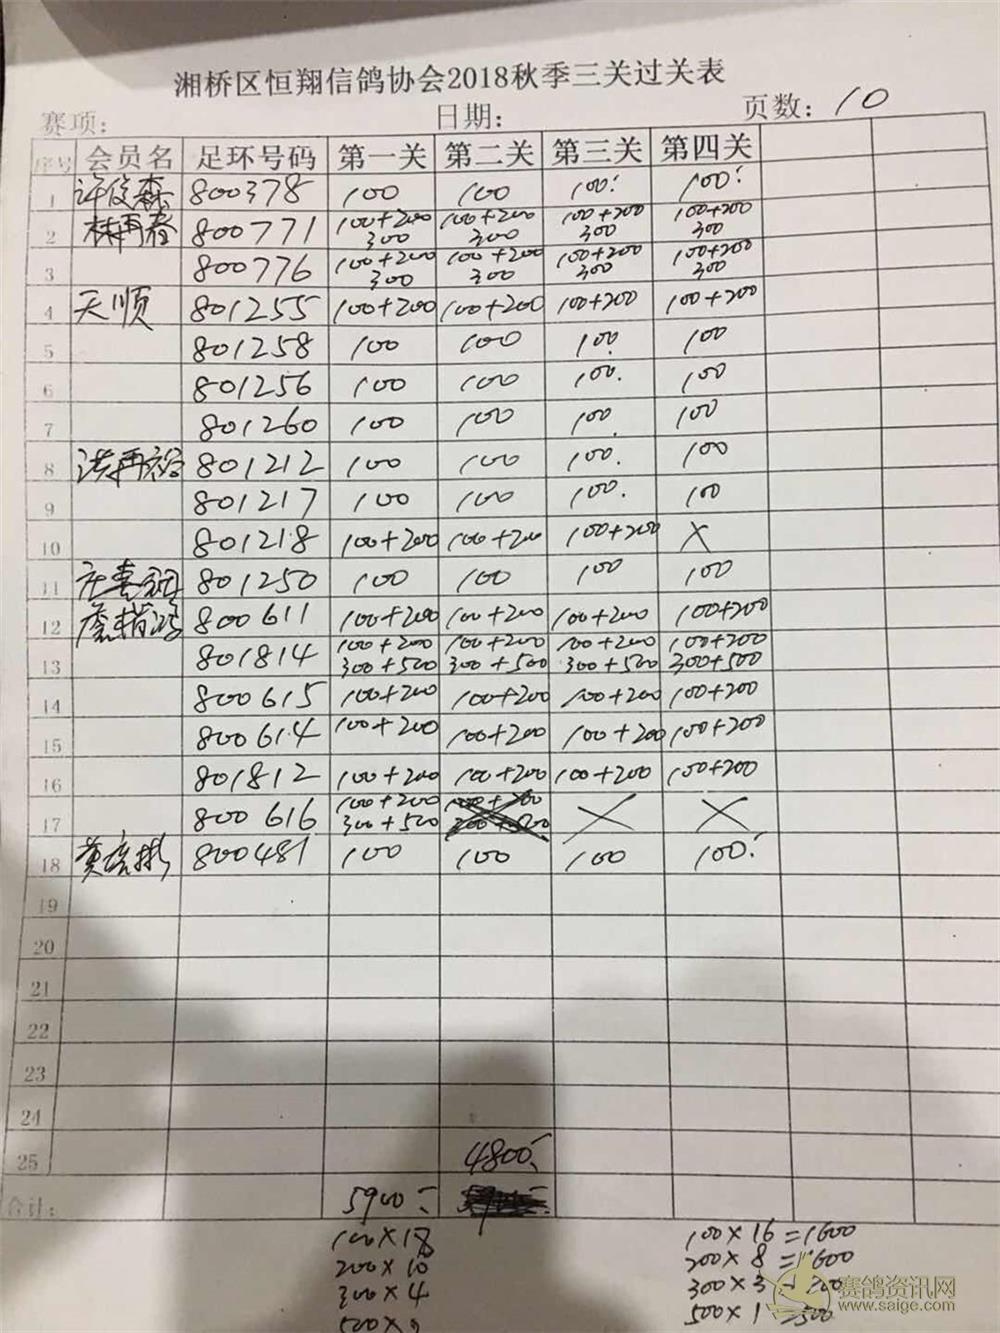 湘桥区恒翔信鸽协会2018秋季三关过关表
赛项: 日期: 页数: 10
序号 会员名 足环号码 第一关 第二关 第三关 第四关
1 许俊森 800378 100 100 100: 100:
2 林再春 800771 100+200 300 100+200 300 100+200 300 100+200 300
3 800776 100+200 300 100+200 300 100+200 300 100+200 300
4 天顺 801255 100+200 100+200 100+200 100+200
5 801258 100 100 100. 100
6 801256 100 100 100. 100
7 801260 100 100 100. 100
8 801212 100 100 100. 100
9 801217 100 100 100. 100
10 801218 100+200 100+200 100+200 X
11 801250 100 100 100 100
12 800611 100+200 100+200 100+200 100+200
13 801814 100+200 300+500 100+200 300+500 100+200 300+500 100+200 300+500
14 800615 100+200 100+200 100+200 100+200
15 800614 100+200 100+200 100+200 100+200
16 801812 100+200 100+200 100+200 100+200
17 800616 100+200 300+500 X X
18 800481 100 100 100 100:
19
20
21
22
23
24
25 4800
合计: 5900
100×18 100×16=1600
200×10 200×8=1600
300×4 300×3
500× 500×1=500
赛鸽资讯网
www.saige.com